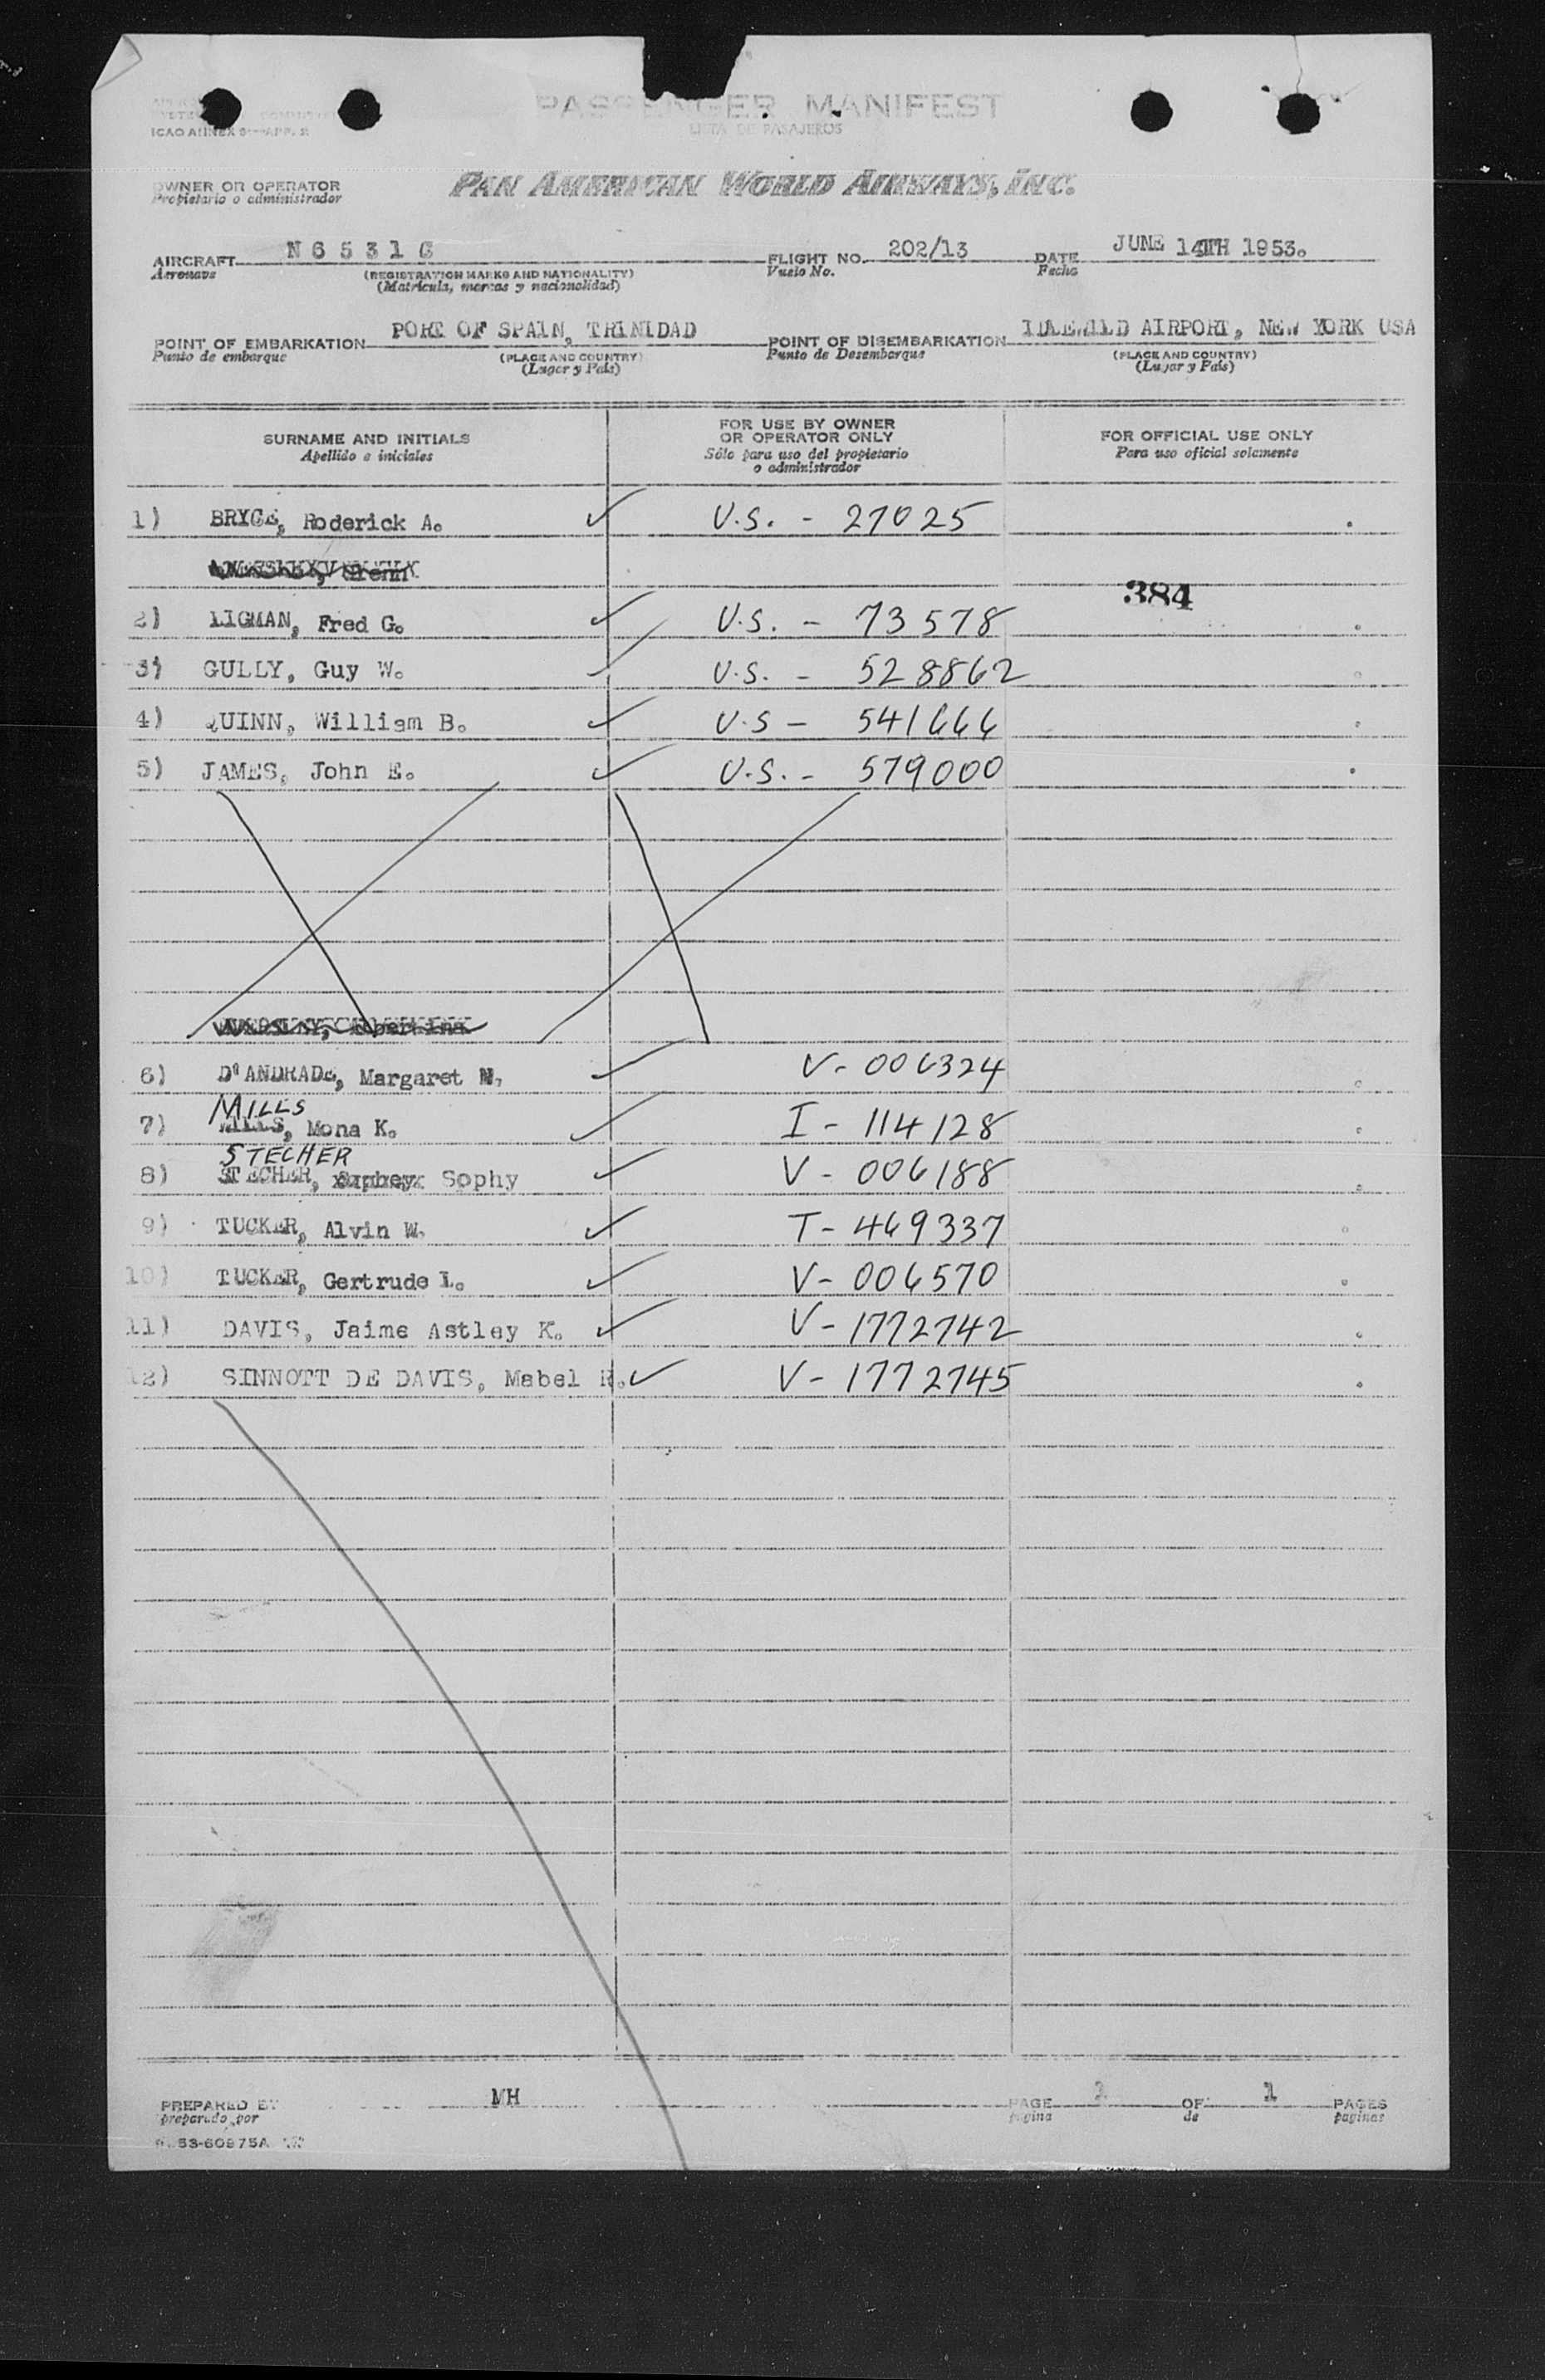 PASSENGER MANIFEST
LISTA DE PASAJEROS
ICAO ANNEX 9—APP. 2
OWNER OR OPERATOR
Propietario o administrador
PAN AMERICAN WORLD AIRWAYS, INC.
AIRCRAFT N 6 5 3 1 C FLIGHT NO. 202/13 DATE JUNE 14TH 1953.
Aeronave (REGISTRATION MARKS AND NATIONALITY) Vuelo No. Fecha
(Matrícula, marcas y nacionalidad)
POINT OF EMBARKATION PORT OF SPAIN, TRINIDAD POINT OF DISEMBARKATION IDLEWILD AIRPORT, NEW YORK USA
Punto de embarque (PLACE AND COUNTRY) Punto de Desembarque (PLACE AND COUNTRY)
(Lugar y País) (Lugar y País)
SURNAME AND INITIALS
Apellido e iniciales
FOR USE BY OWNER
OR OPERATOR ONLY
Sólo para uso del propietario
o administrador
FOR OFFICIAL USE ONLY
Para uso oficial solamente
1) BRYCE, Roderick A. ✓ U.S. - 27025
Glenn
384
2) LIGMAN, Fred G. ✓ U.S. - 73578
3) GULLY, Guy W. ✓ U.S. - 528862
4) QUINN, William B. ✓ U.S - 541666
5) JAMES, John E. ✓ U.S. - 579000
6) D'ANDRADE, Margaret N. ✓ V- 006324
MILLS
7) MILLS, Mona K. ✓ I - 114128
STECHER
8) STECHER, Sophy ✓ V - 006188
9) TUCKER, Alvin W. ✓ T- 469337
10) TUCKER, Gertrude L. ✓ V- 006570
11) DAVIS, Jaime Astley K. ✓ V- 1772742
12) SINNOTT DE DAVIS, Mabel R. ✓ V- 1772745
PREPARED BY MH PAGE 1 OF 1 PAGES
preparado por página de páginas
53-60975A